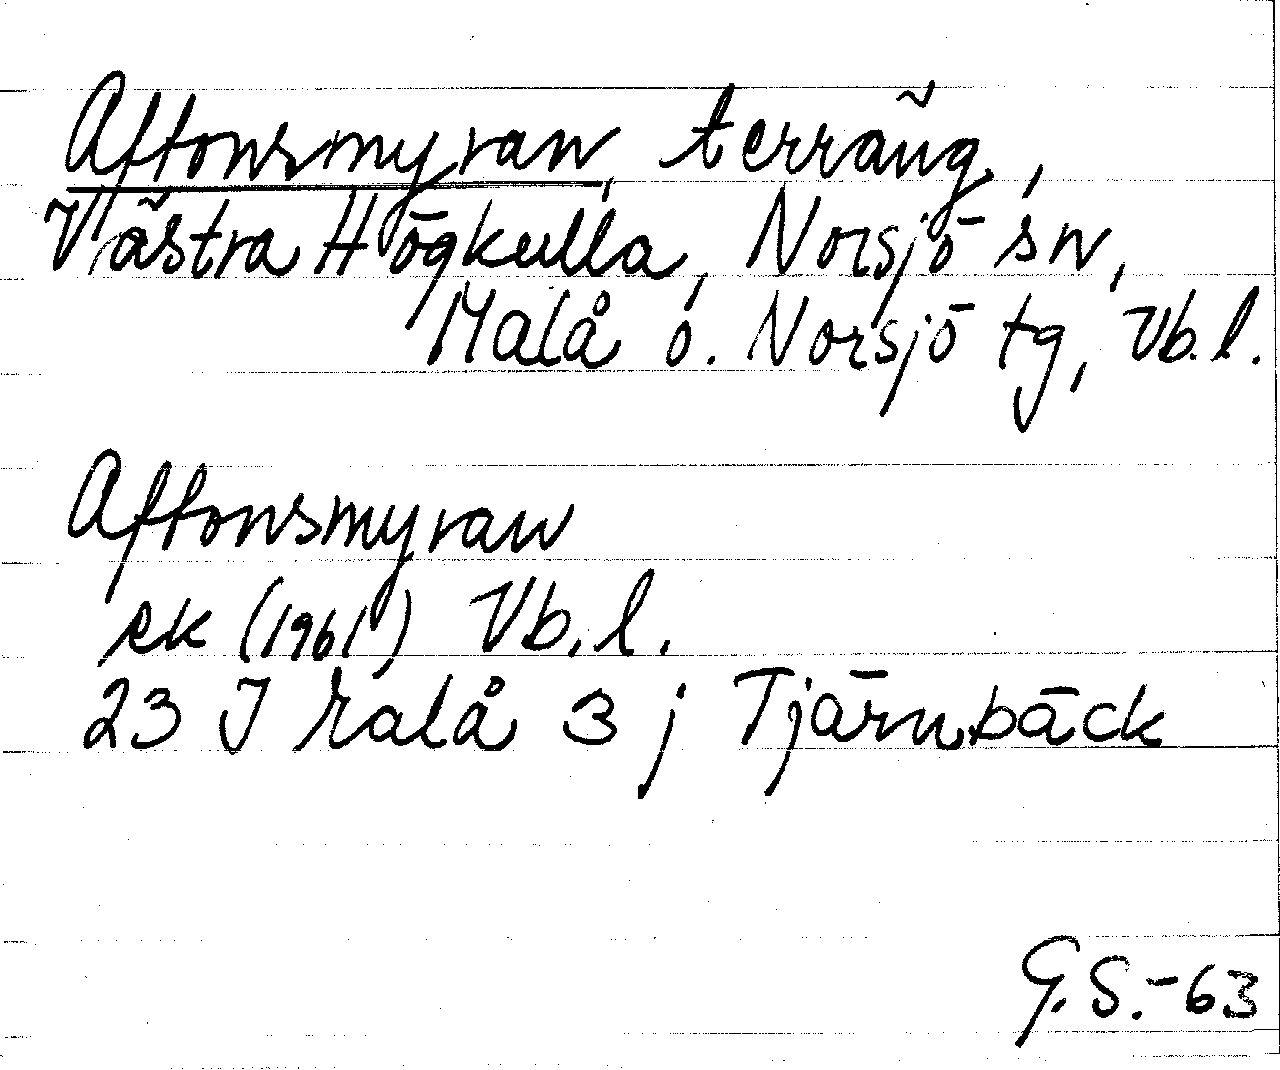 Aftonsmyran, terräng,
Västra Högkulla, Norsjö sn,
Malå o. Norsjö tg, Vb. l.
Aftonsmyran
ek (1961) Vb. l.
23 J Malå 3 j Tjärnbäck
G.S.-63